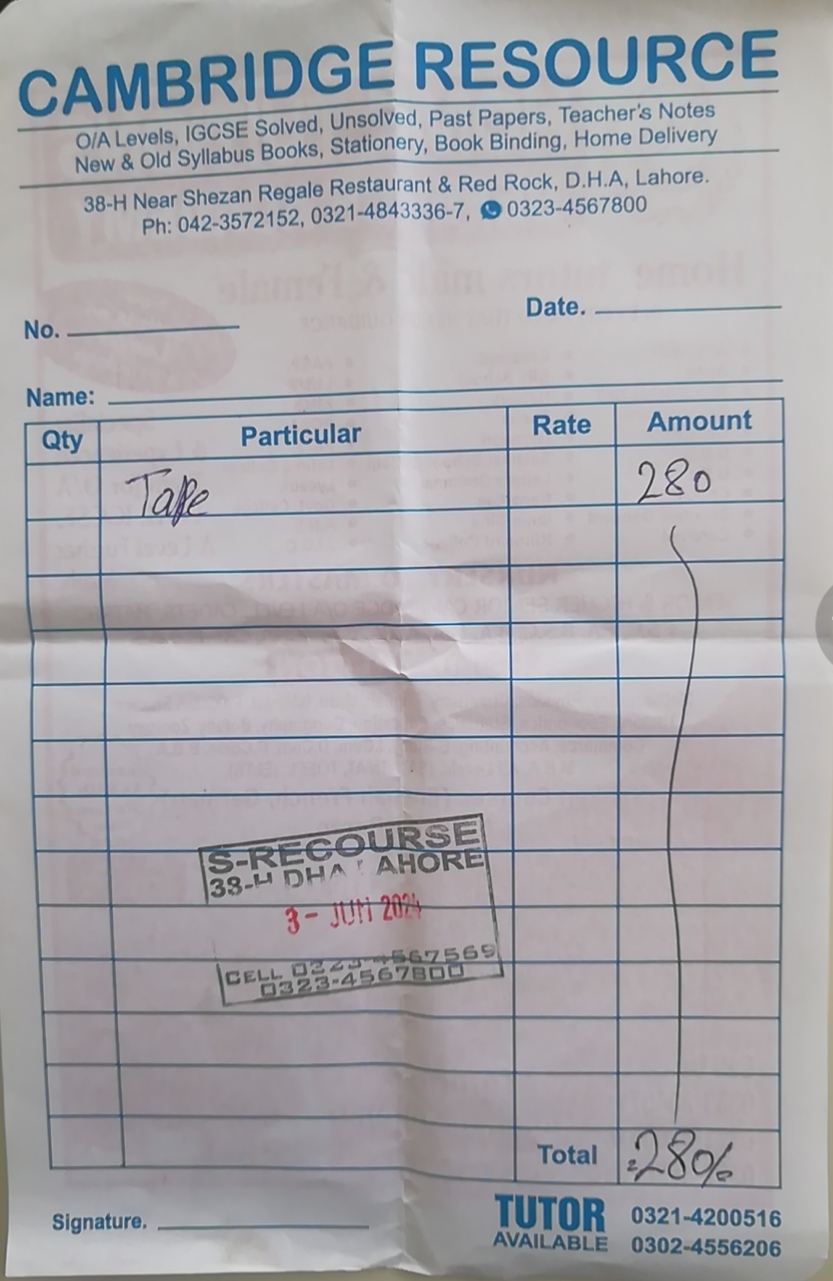 CAMBRIDGE RESOURCE
O/A Levels, IGCSE Solved, Unsolved, Past Papers, Teacher's Notes
New & Old Syllabus Books, Stationery, Book Binding, Home Delivery
38-H Near Shezan Regale Restaurant & Red Rock, D.H.A, Lahore.
Ph: 042-3572152, 0321-4843336-7, 0323-4567800
No. Date.
Name:
Qty Particular Rate Amount
Tape 280
S-RECOURSE
38-H DHA LAHORE
3- JUN 2024
CELL 0323-4567569
0323-4567800
Total 280/-
Signature. TUTOR 0321-4200516
AVAILABLE 0302-4556206